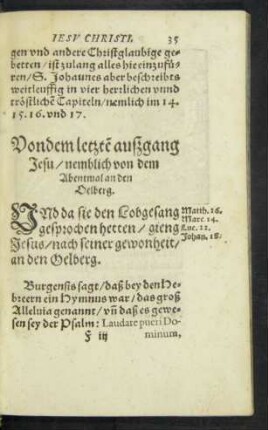 IESV CHRISTI. 35
gen vnd andere Christglaubige ge-
betten / ist zulang alles hie einzufüs-
ren / S. Johannes aber beschreibts
weitleuffig in vier herrlichen vnnd
tröstlichē Capiteln / nemlich im 14.
15. 16. vnd 17.
Von dem letztē außgang
Jesu / nemblich von dem
Abentmal an den
Oelberg.
VNd da sie den Lobgesang
gesprochen hetten / gieng
Jesus / nach seiner gewonheit /
an den Oelberg.
Matth. 26.
Marc. 14.
Luc. 22.
Johan. 18.
Burgensis sagt / daß bey den He-
breern ein Hymnus war / das groß
Alleluia genannt / vn̄ daß es gewe-
sen sey der Psalm: Laudate pueri Do-
F iij minum,